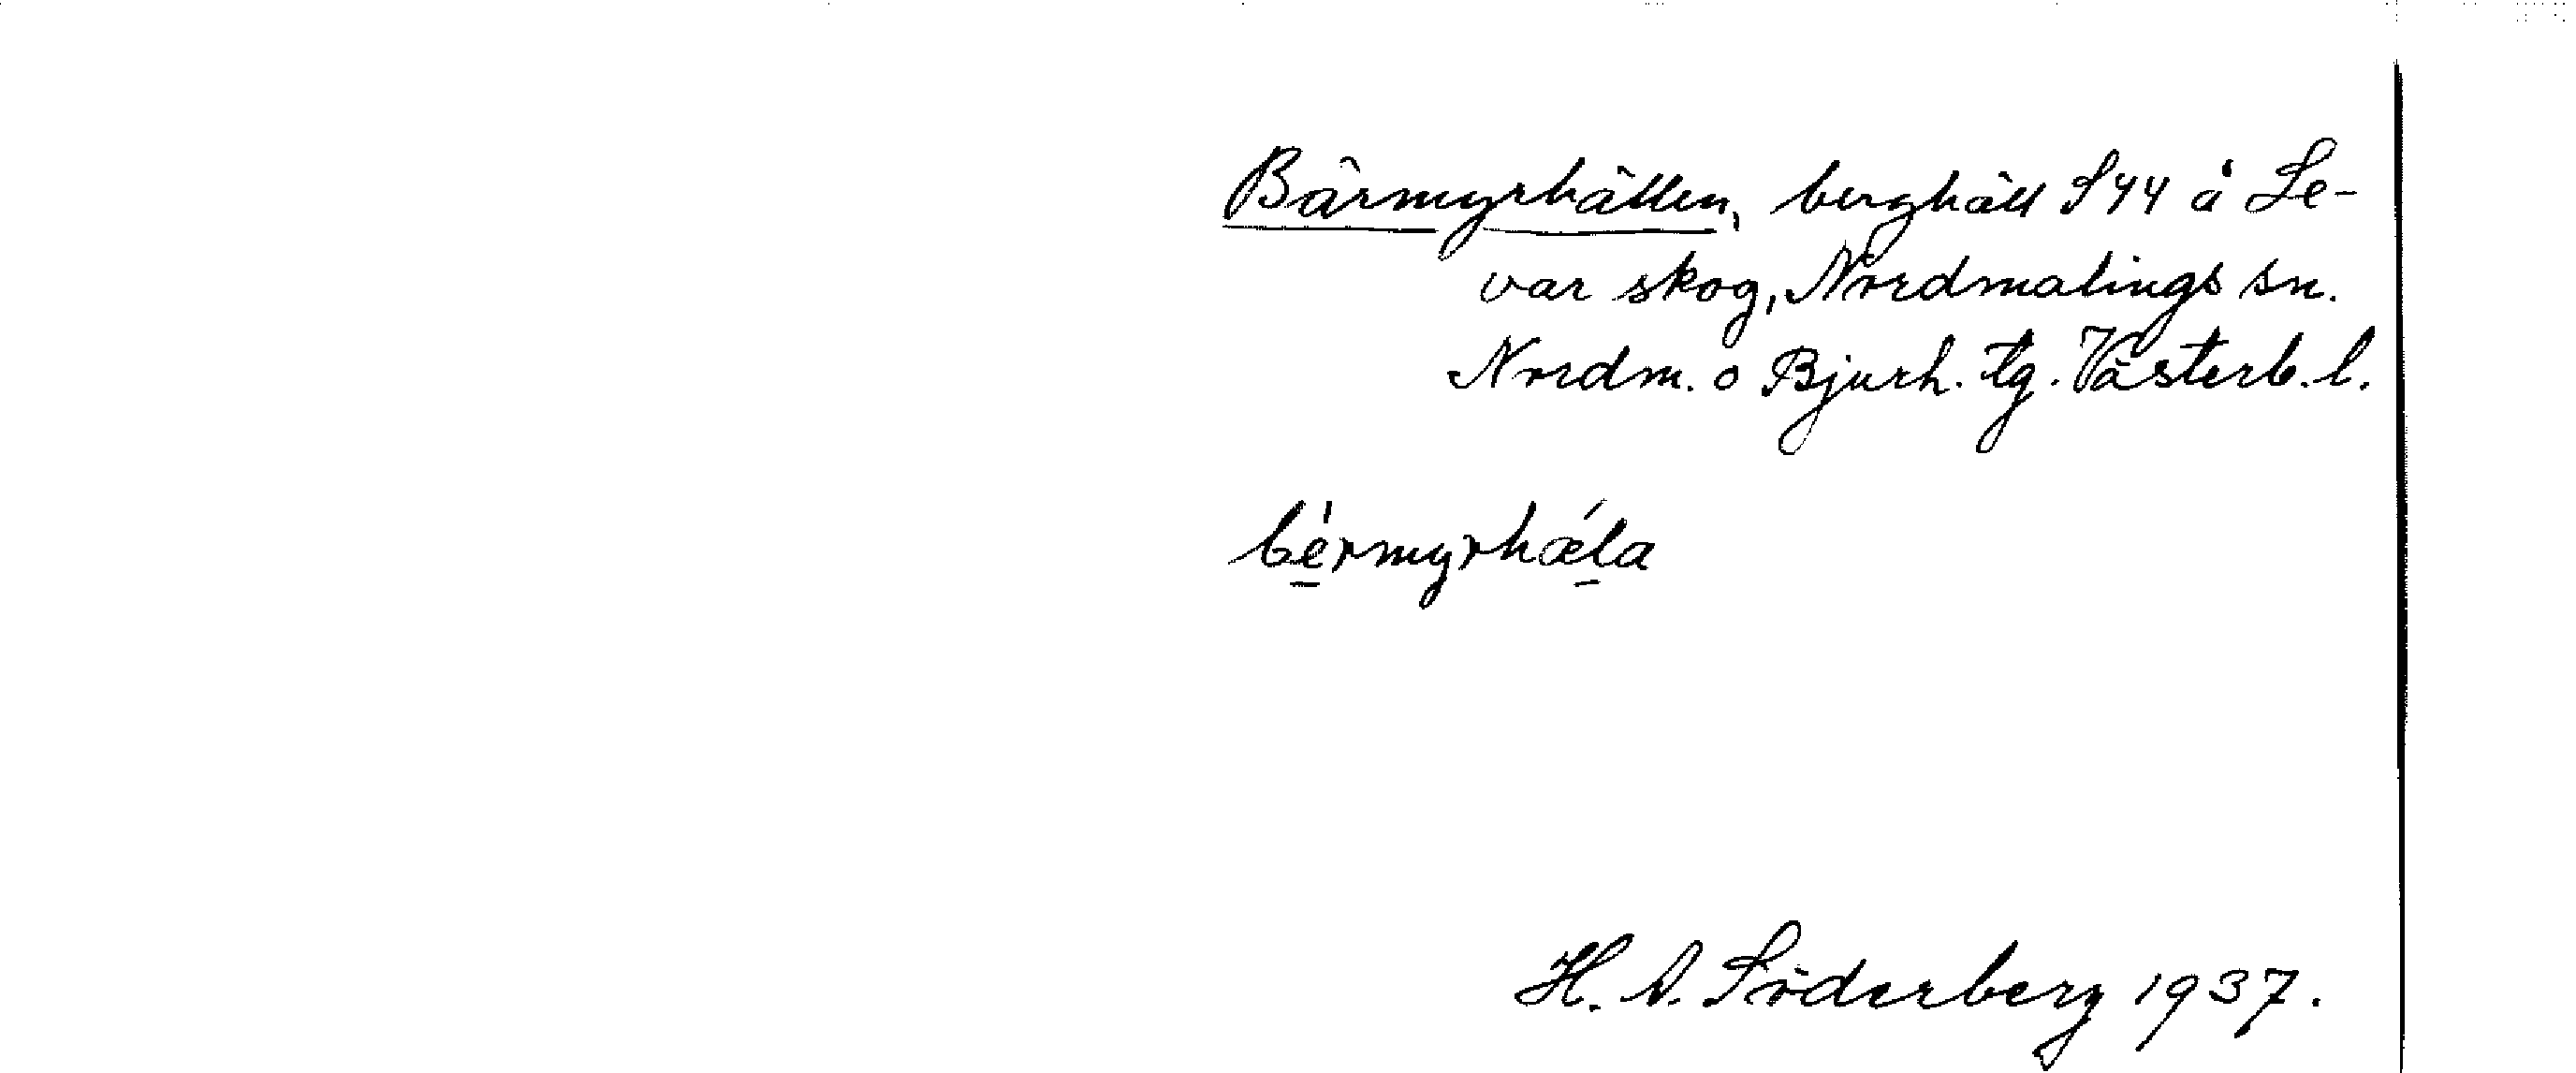 Bärmyrhällen, berghäll S44 å Le-
var skog, Nordmalings sn.
Nordm. o Bjurh. tg. Västerb. l.
bérmyrhǽla
H. A. Söderberg 1937.